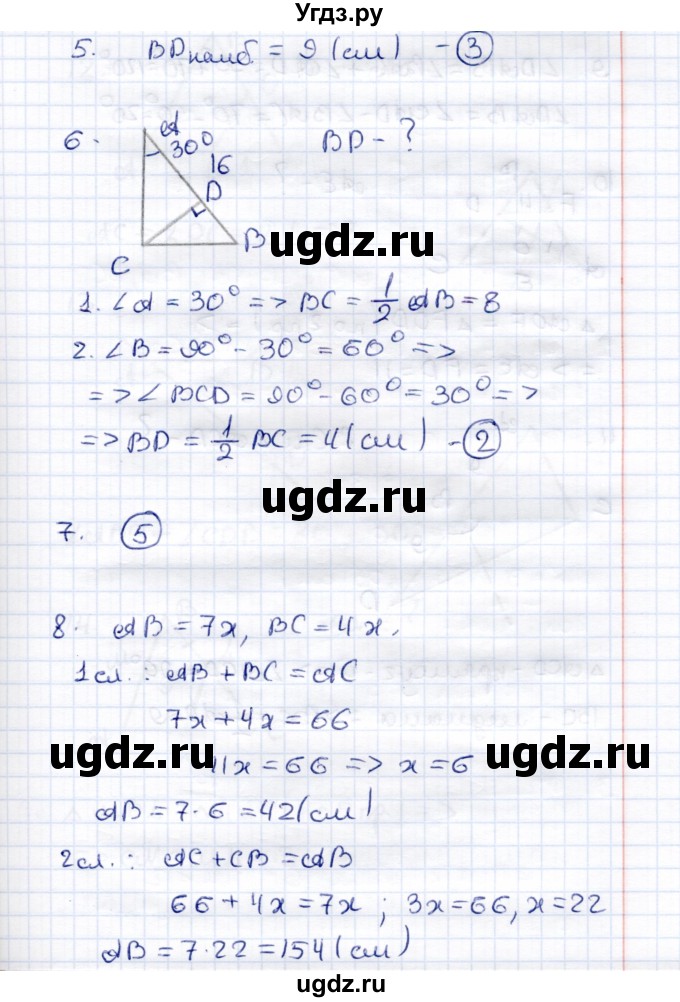 Угдз.ру
5. BDнаиб. = 9 (см) - ③
6. A
30° BD - ?
16
D
B
C
ugdz.ru
1. ∠A = 30° => BC = 1/2 AB = 8
2. ∠B = 90° - 30° = 60° =>
=> ∠BCD = 90° - 60° = 30° =>
=> BD = 1/2 BC = 4 (см) - ②
ugdz.ru
7. ⑤
8. AB = 7x, BC = 4x,
1 сл.: AB + BC = AC
7x + 4x = 66
ugdz.ru
ugdz.ru
11x = 66 => x = 6
AB = 7·6 = 42 (см)
2 сл.: AC + CB = AB
66 + 4x = 7x ; 3x = 66, x = 22
AB = 7·22 = 154 (см)
ugdz.ru